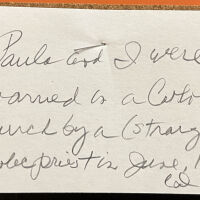 Paula and I were
married in a Catho
urch by a (strang
priest in June, 1